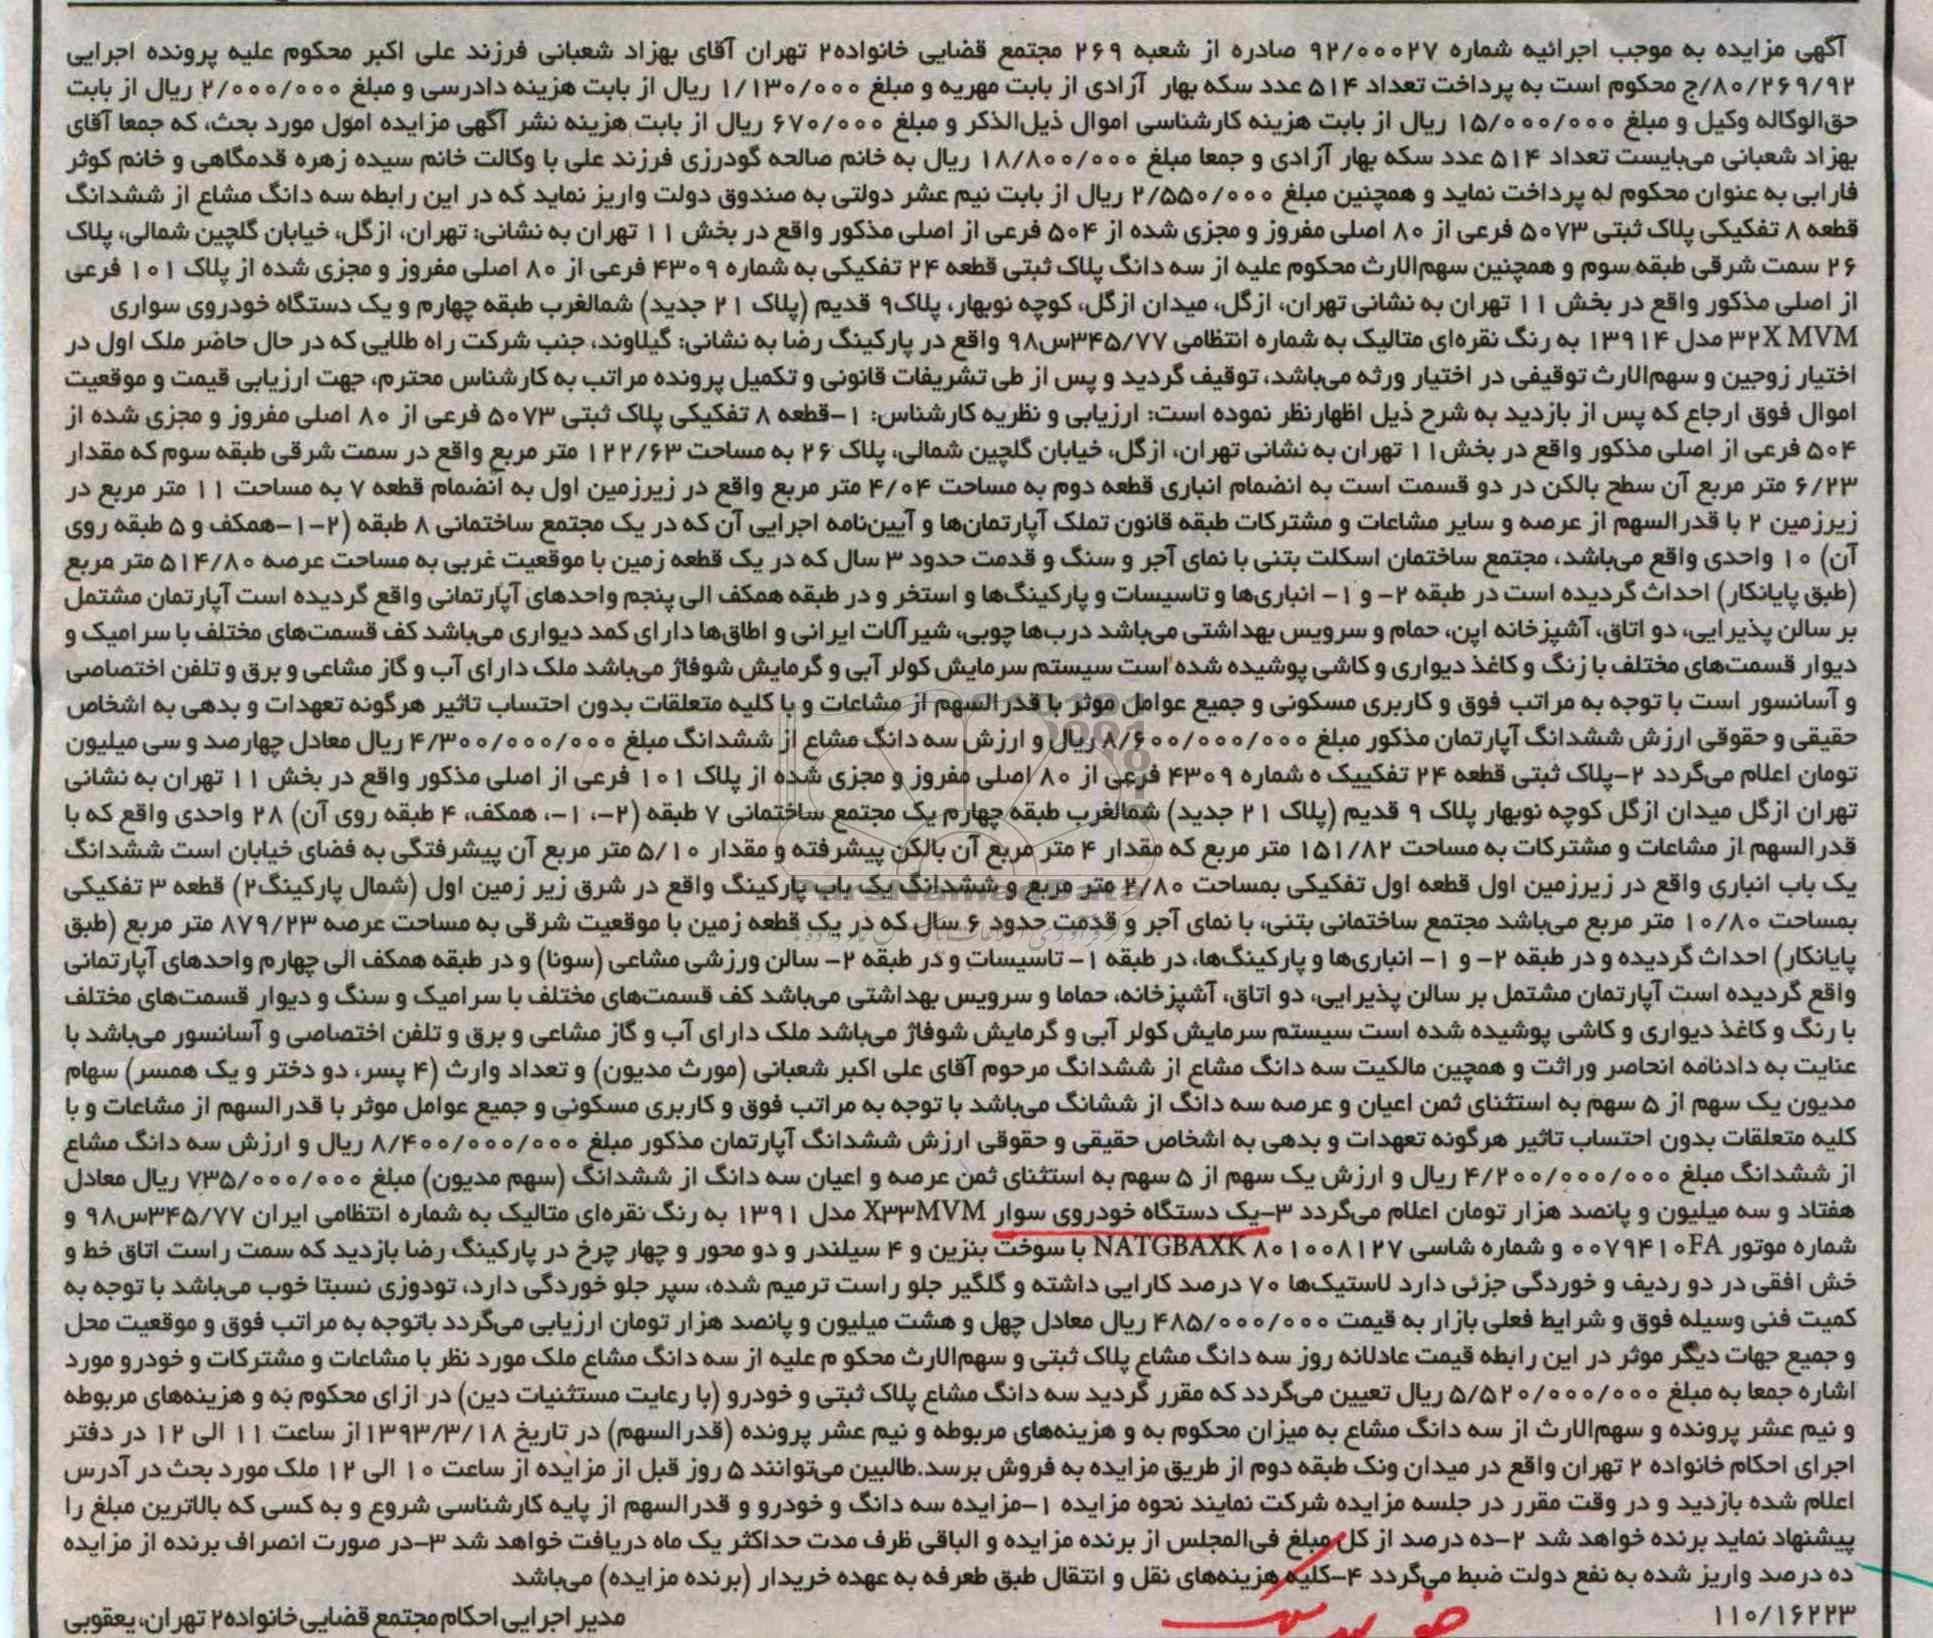 آگهی مزایده به موجب اجرائیه شماره ۹۲/۰۰۰۲۷ صادره از شعبه ۲۶۹ مجتمع قضایی خانواده۲ تهران آقای بهزاد شعبانی فرزند علی اکبر محکوم علیه پرونده اجرایی
۸۰/۲۶۹/۹۲/ج محکوم است به پرداخت تعداد ۵۱۴ عدد سکه بهار آزادی از بابت مهریه و مبلغ ۱/۱۳۰/۰۰۰ ریال از بابت هزینه دادرسی و مبلغ ۲/۰۰۰/۰۰۰ ریال از بابت
حق‌الوکاله وکیل و مبلغ ۱۵/۰۰۰/۰۰۰ ریال از بابت هزینه کارشناسی اموال ذیل‌الذکر و مبلغ ۶۷۰/۰۰۰ ریال از بابت هزینه نشر آگهی مزایده امول مورد بحث، که جمعا آقای
بهزاد شعبانی می‌بایست تعداد ۵۱۴ عدد سکه بهار آزادی و جمعا مبلغ ۱۸/۸۰۰/۰۰۰ ریال به خانم صالحه گودرزی فرزند علی با وکالت خانم سیده زهره قدمگاهی و خانم کوثر
فارابی به عنوان محکوم له پرداخت نماید و همچنین مبلغ ۲/۵۵۰/۰۰۰ ریال از بابت نیم عشر دولتی به صندوق دولت واریز نماید که در این رابطه سه دانگ مشاع از ششدانگ
قطعه ۸ تفکیکی پلاک ثبتی ۵۰۷۳ فرعی از ۸۰ اصلی مفروز و مجزی شده از ۵۰۴ فرعی از اصلی مذکور واقع در بخش ۱۱ تهران به نشانی: تهران، ازگل، خیابان گلچین شمالی، پلاک
۲۶ سمت شرقی طبقه سوم و همچنین سهم‌الارث محکوم علیه از سه دانگ پلاک ثبتی قطعه ۲۴ تفکیکی به شماره ۴۳۰۹ فرعی از ۸۰ اصلی مفروز و مجزی شده از پلاک ۱۰۱ فرعی
از اصلی مذکور واقع در بخش ۱۱ تهران به نشانی تهران، ازگل، میدان ازگل، کوچه نوبهار، پلاک۹ قدیم (پلاک ۲۱ جدید) شمالغرب طبقه چهارم و یک دستگاه خودروی سواری
۳۲X MVM مدل ۱۳۹۱۴ به رنگ نقره‌ای متالیک به شماره انتظامی ۳۴۵/۷۷س۹۸ واقع در پارکینگ رضا به نشانی: گیلاوند، جنب شرکت راه طلایی که در حال حاضر ملک اول در
اختیار زوجین و سهم‌الارث توقیفی در اختیار ورثه می‌باشد، توقیف گردید و پس از طی تشریفات قانونی و تکمیل پرونده مراتب به کارشناس محترم، جهت ارزیابی قیمت و موقعیت
اموال فوق ارجاع که پس از بازدید به شرح ذیل اظهارنظر نموده است: ارزیابی و نظریه کارشناس: ۱-قطعه ۸ تفکیکی پلاک ثبتی ۵۰۷۳ فرعی از ۸۰ اصلی مفروز و مجزی شده از
۵۰۴ فرعی از اصلی مذکور واقع در بخش۱۱ تهران به نشانی تهران، ازگل، خیابان گلچین شمالی، پلاک ۲۶ به مساحت ۱۲۲/۶۳ متر مربع واقع در سمت شرقی طبقه سوم که مقدار
۶/۲۳ متر مربع آن سطح بالکن در دو قسمت است به انضمام انباری قطعه دوم به مساحت ۴/۰۴ متر مربع واقع در زیرزمین اول به انضمام قطعه ۷ به مساحت ۱۱ متر مربع در
زیرزمین ۲ با قدرالسهم از عرصه و سایر مشاعات و مشترکات طبقه قانون تملک آپارتمان‌ها و آیین‌نامه اجرایی آن که در یک مجتمع ساختمانی ۸ طبقه (۲-۱-همکف و ۵ طبقه روی
آن) ۱۰ واحدی واقع می‌باشد، مجتمع ساختمان اسکلت بتنی با نمای آجر و سنگ و قدمت حدود ۳ سال که در یک قطعه زمین با موقعیت غربی به مساحت عرصه ۵۱۴/۸۰ متر مربع
(طبق پایانکار) احداث گردیده است در طبقه ۲- و ۱- انباری‌ها و تاسیسات و پارکینگ‌ها و استخر و در طبقه همکف الی پنجم واحدهای آپارتمانی واقع گردیده است آپارتمان مشتمل
بر سالن پذیرایی، دو اتاق، آشپزخانه اپن، حمام و سرویس بهداشتی می‌باشد درب‌ها چوبی، شیرآلات ایرانی و اطاق‌ها دارای کمد دیواری می‌باشد کف قسمت‌های مختلف با سرامیک و
دیوار قسمت‌های مختلف با زنگ و کاغذ دیواری و کاشی پوشیده شده است سیستم سرمایش کولر آبی و گرمایش شوفاژ می‌باشد ملک دارای آب و گاز مشاعی و برق و تلفن اختصاصی
و آسانسور است با توجه به مراتب فوق و کاربری مسکونی و جمیع عوامل موثر با قدرالسهم از مشاعات و با کلیه متعلقات بدون احتساب تاثیر هرگونه تعهدات و بدهی به اشخاص
حقیقی و حقوقی ارزش ششدانگ آپارتمان مذکور مبلغ ۸/۶۰۰/۰۰۰/۰۰۰ ریال و ارزش سه دانگ مشاع از ششدانگ مبلغ ۴/۳۰۰/۰۰۰/۰۰۰ ریال معادل چهارصد و سی میلیون
تومان اعلام می‌گردد ۲-پلاک ثبتی قطعه ۲۴ تفکییک ه شماره ۴۳۰۹ فرعی از ۸۰ اصلی مفروز و مجزی شده از پلاک ۱۰۱ فرعی از اصلی مذکور واقع در بخش ۱۱ تهران به نشانی
تهران ازگل میدان ازگل کوچه نوبهار پلاک ۹ قدیم (پلاک ۲۱ جدید) شمالغرب طبقه چهارم یک مجتمع ساختمانی ۷ طبقه (۲-، ۱-، همکف، ۴ طبقه روی آن) ۲۸ واحدی واقع که با
قدرالسهم از مشاعات و مشترکات به مساحت ۱۵۱/۸۲ متر مربع که مقدار ۴ متر مربع آن بالکن پیشرفته و مقدار ۵/۱۰ متر مربع آن پیشرفتگی به فضای خیابان است ششدانگ
یک باب انباری واقع در زیرزمین اول قطعه اول تفکیکی بمساحت ۲/۸۰ متر مربع و ششدانگ یک باب پارکینگ واقع در شرق زیر زمین اول (شمال پارکینگ۲) قطعه ۳ تفکیکی
بمساحت ۱۰/۸۰ متر مربع می‌باشد مجتمع ساختمانی بتنی، با نمای آجر و قدمت حدود ۶ سال که در یک قطعه زمین با موقعیت شرقی به مساحت عرصه ۸۷۹/۲۳ متر مربع (طبق
پایانکار) احداث گردیده و در طبقه ۲- و ۱- انباری‌ها و پارکینگ‌ها، در طبقه ۱- تاسیسات و در طبقه ۲- سالن ورزشی مشاعی (سونا) و در طبقه همکف الی چهارم واحدهای آپارتمانی
واقع گردیده است آپارتمان مشتمل بر سالن پذیرایی، دو اتاق، آشپزخانه، حماما و سرویس بهداشتی می‌باشد کف قسمت‌های مختلف با سرامیک و سنگ و دیوار قسمت‌های مختلف
با رنگ و کاغذ دیواری و کاشی پوشیده شده است سیستم سرمایش کولر آبی و گرمایش شوفاژ می‌باشد ملک دارای آب و گاز مشاعی و برق و تلفن اختصاصی و آسانسور می‌باشد با
عنایت به دادنامه انحاصر وراثت و همچین مالکیت سه دانگ مشاع از ششدانگ مرحوم آقای علی اکبر شعبانی (مورث مدیون) و تعداد وارث (۴ پسر، دو دختر و یک همسر) سهام
مدیون یک سهم از ۵ سهم به استثنای ثمن اعیان و عرصه سه دانگ از ششانگ می‌باشد با توجه به مراتب فوق و کاربری مسکونی و جمیع عوامل موثر با قدرالسهم از مشاعات و با
کلیه متعلقات بدون احتساب تاثیر هرگونه تعهدات و بدهی به اشخاص حقیقی و حقوقی ارزش ششدانگ آپارتمان مذکور مبلغ ۸/۴۰۰/۰۰۰/۰۰۰ ریال و ارزش سه دانگ مشاع
از ششدانگ مبلغ ۴/۲۰۰/۰۰۰/۰۰۰ ریال و ارزش یک سهم از ۵ سهم به استثنای ثمن عرصه و اعیان سه دانگ از ششدانگ (سهم مدیون) مبلغ ۷۳۵/۰۰۰/۰۰۰ ریال معادل
هفتاد و سه میلیون و پانصد هزار تومان اعلام می‌گردد ۳-یک دستگاه خودروی سوار X۳۳MVM مدل ۱۳۹۱ به رنگ نقره‌ای متالیک به شماره انتظامی ایران ۳۴۵/۷۷س۹۸ و
شماره موتور ۰۰۷۹۴۱۰FA و شماره شاسی NATGBAXK ۸۰۱۰۰۸۱۲۷ با سوخت بنزین و ۴ سیلندر و دو محور و چهار چرخ در پارکینگ رضا بازدید که سمت راست اتاق خط و
خش افقی در دو ردیف و خوردگی جزئی دارد لاستیک‌ها ۷۰ درصد کارایی داشته و گلگیر جلو راست ترمیم شده، سپر جلو خوردگی دارد، تودوزی نسبتا خوب می‌باشد با توجه به
کمیت فنی وسیله فوق و شرایط فعلی بازار به قیمت ۴۸۵/۰۰۰/۰۰۰ ریال معادل چهل و هشت میلیون و پانصد هزار تومان ارزیابی می‌گردد باتوجه به مراتب فوق و موقعیت محل
و جمیع جهات دیگر موثر در این رابطه قیمت عادلانه روز سه دانگ مشاع پلاک ثبتی و سهم‌الارث محکو م علیه از سه دانگ مشاع ملک مورد نظر با مشاعات و مشترکات و خودرو مورد
اشاره جمعا به مبلغ ۵/۵۲۰/۰۰۰/۰۰۰ ریال تعیین می‌گردد که مقرر گردید سه دانگ مشاع پلاک ثبتی و خودرو (با رعایت مستثنیات دین) در ازای محکوم به و هزینه‌های مربوطه
و نیم عشر پرونده و سهم‌الارث از سه دانگ مشاع به میزان محکوم به و هزینه‌های مربوطه و نیم عشر پرونده (قدرالسهم) در تاریخ ۱۳۹۳/۳/۱۸از ساعت ۱۱ الی ۱۲ در دفتر
اجرای احکام خانواده ۲ تهران واقع در میدان ونک طبقه دوم از طریق مزایده به فروش برسد.طالبین می‌توانند ۵ روز قبل از مزایده از ساعت ۱۰ الی ۱۲ ملک مورد بحث در آدرس
اعلام شده بازدید و در وقت مقرر در جلسه مزایده شرکت نمایند نحوه مزایده ۱-مزایده سه دانگ و خودرو و قدرالسهم از پایه کارشناسی شروع و به کسی که بالاترین مبلغ را
پیشنهاد نماید برنده خواهد شد ۲-ده درصد از کل مبلغ فی‌المجلس از برنده مزایده و الباقی ظرف مدت حداکثر یک ماه دریافت خواهد شد ۳-در صورت انصراف برنده از مزایده
ده درصد واریز شده به نفع دولت ضبط می‌گردد ۴-کلیه هزینه‌های نقل و انتقال طبق طعرفه به عهده خریدار (برنده مزایده) می‌باشد
۱۱۰/۱۶۲۲۳
مدیر اجرایی احکام مجتمع قضایی خانواده۲ تهران، یعقوبی
ParsNamadData